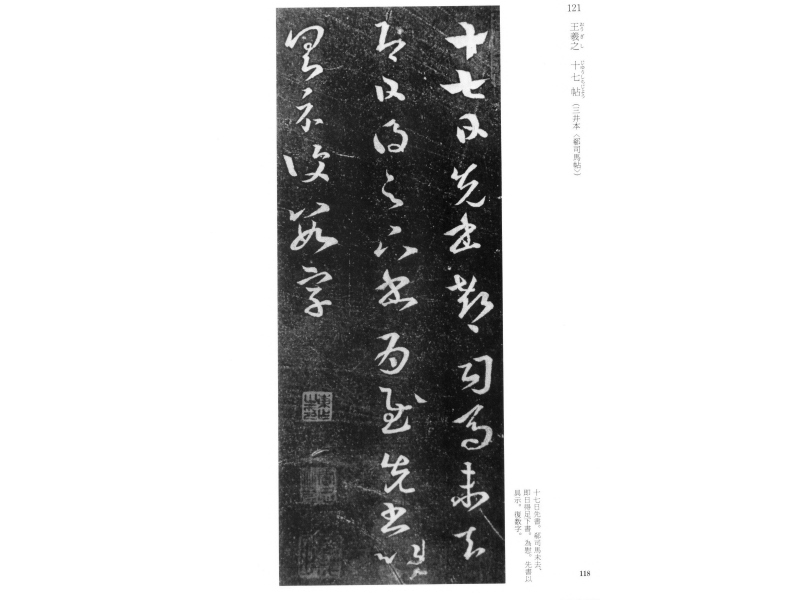 121
王羲之 十七帖 (三井本《郗司馬帖》)
十七日先書郗司馬未去
即日得足下書為慰先書以
具示復數字
十七日先書。郗司馬未去。
即日得足下書。為慰。先書以
具示。復数字。
118